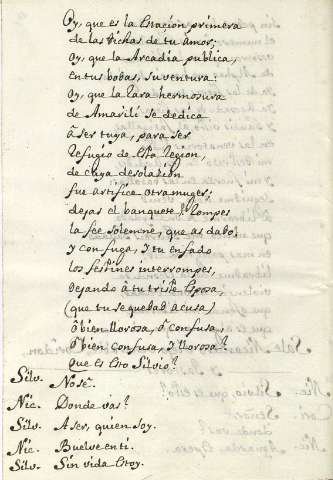 Oy, que es la Estacion primera
de las dichas de tu Amor;
Oy, que la Arcadia publica,
en tus bodas, su ventura:
Oy, que la rara hermosura
de Amarili se dedica
â ser tuya, para ser
refugio de esta region,
de cuya desolazion
fue artifice otra muger;
dejas el banquete? Rompes
la fee solemne, que as dado;
y con fuga, y tu enfado
los festines interrompes,
Dejando â tu triste Esposa,
(que tu sequedad acusa)
ô bien llorosa, ô confusa,
ô bien confusa, y llorosa?
Que es esto Silvio?
Silv. No sè.
Nic. Donde vas?
Silv. A ser, quien soy.
Nic. Buelve en ti.
Silv. Sin vida estoy.